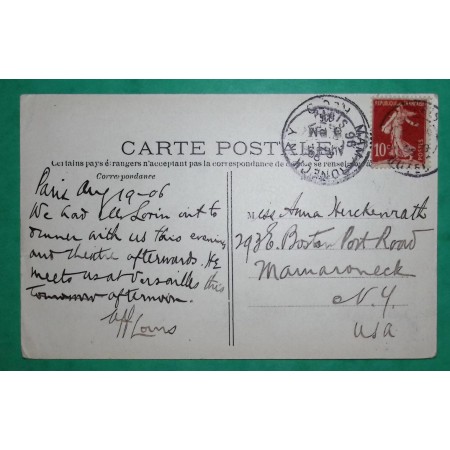 CARTE POSTALE
Certains pays étrangers n'acceptant pas la correspondance de ce côté, se renseigner
Correspondance
Paris Aug 19-06
We had Mr Lorin out to
dinner with us this evening
and theatre afterwards. He
meets us at Versailles this
tomorrow afternoon.
Miss Anna Herckenrath
293 E. Boston Post Road
Mamaroneck
N.Y.
USA
REPUBLIQUE FRANÇAISE
10c
MAMARONECK N.Y.